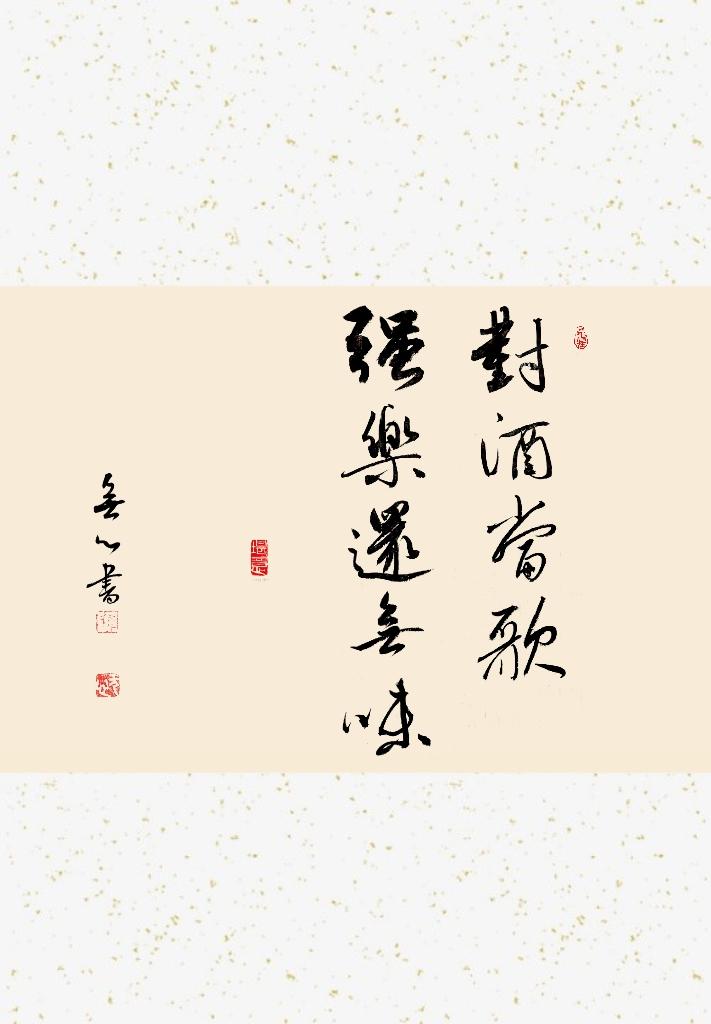 對酒當歌
強樂還無味
無心書